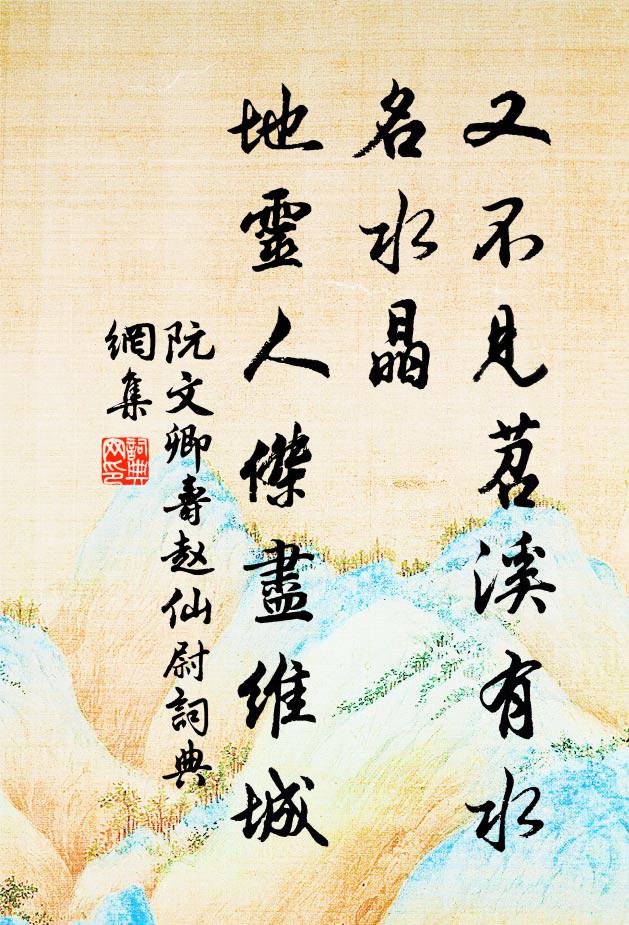 又不見苕溪有水
名水晶
地靈人傑盡維城
阮文卿壽赵仙尉詞典
網集
詞典
网印